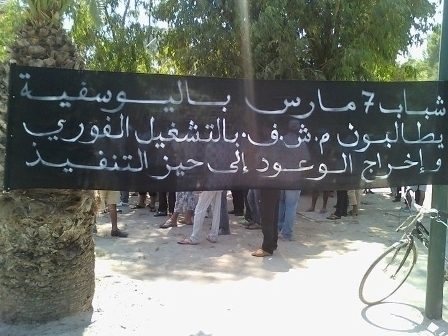 شباب 7 مارس باليوسفية
يطالبون م.ش.ف. بالتشغيل الفوري
و إخراج الوعود إلى حيز التنفيذ